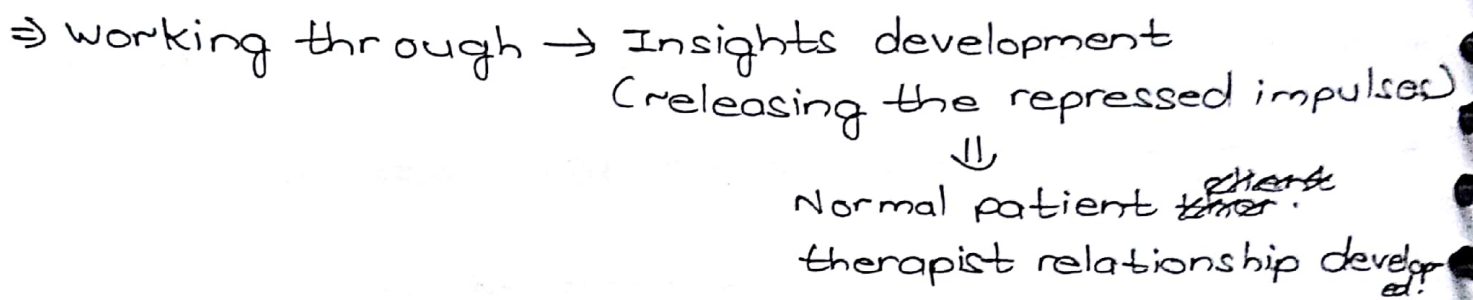 ⇒ Working through → Insights development
(releasing the repressed impulses)
⇓
Normal patient
therapist relationship developed!